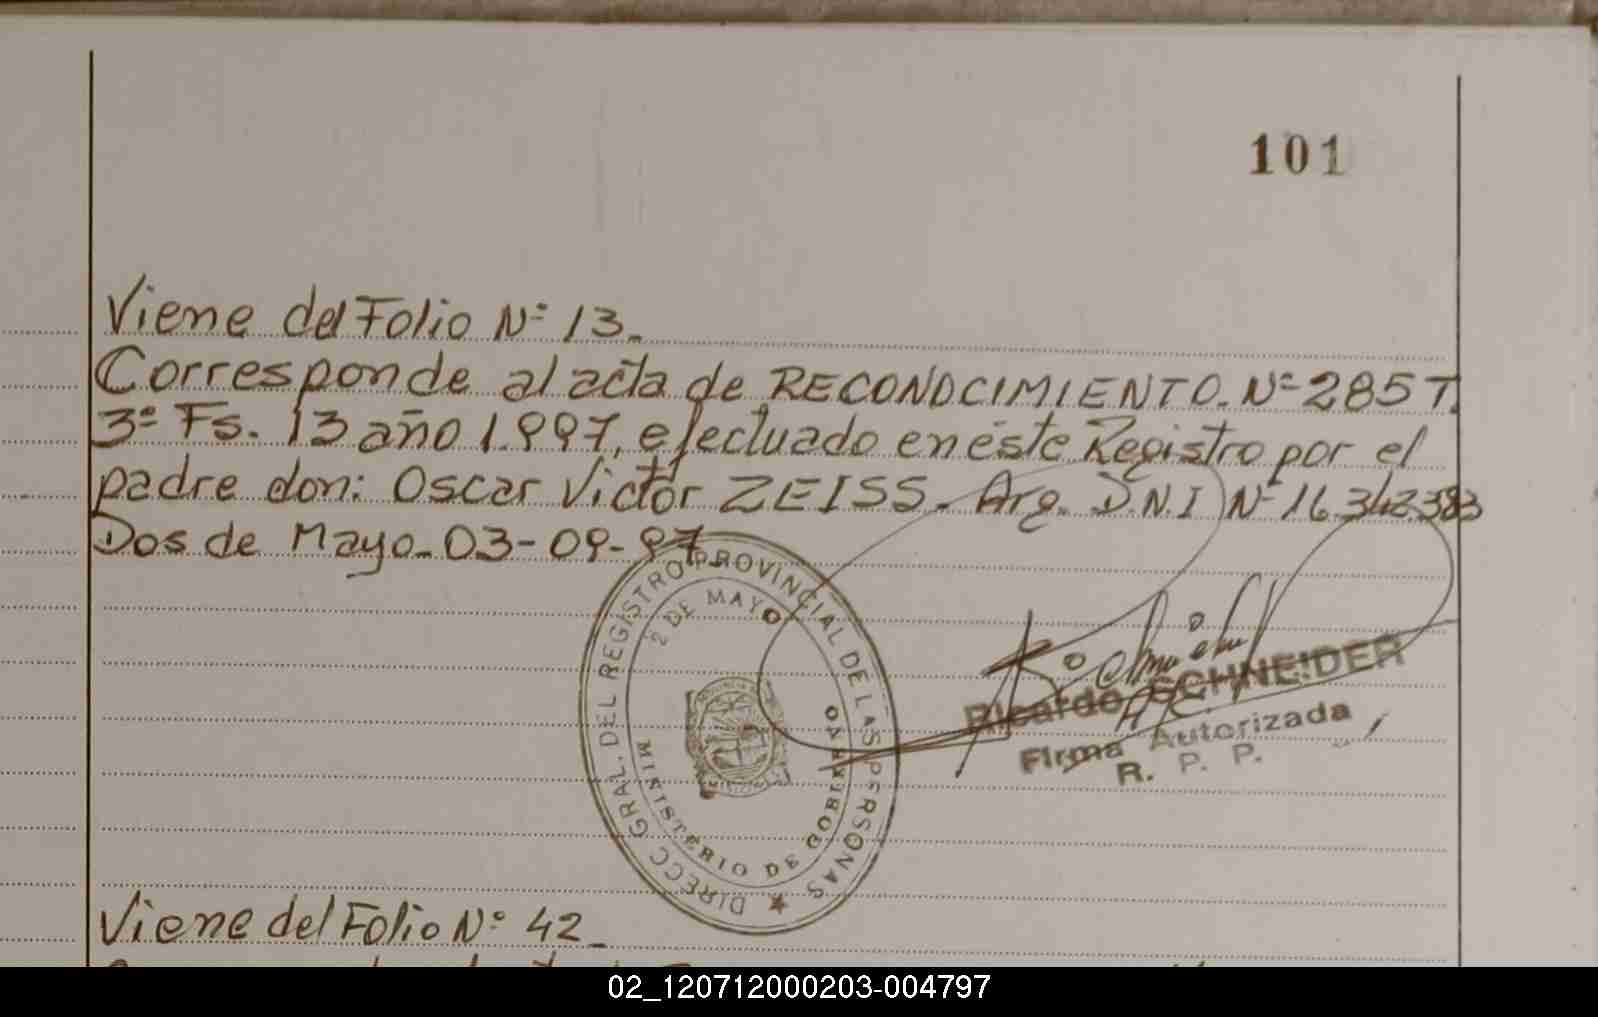 101
Viene del Folio Nº 13.
Corresponde al acta de RECONOCIMIENTO. Nº 285 T.
3º Fs. 13 año 1.997, efectuado en éste Registro por el
padre don: Oscar Victor ZEISS. Arg. D.N.I Nº 16.342.383
Dos de Mayo. 03-09-97
DIRECC GRAL. DEL REGISTRO PROVINCIAL DE LAS PERSONAS
2 DE MAYO
MINISTERIO DE GOBIERNO
MISIONES
Ricardo SCHNEIDER
Firma Autorizada
R. P. P.
Viene del Folio Nº 42
02_120712000203-004797